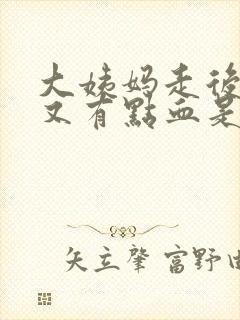 大姨妈走後
又有點血是
矢立肇 富野由